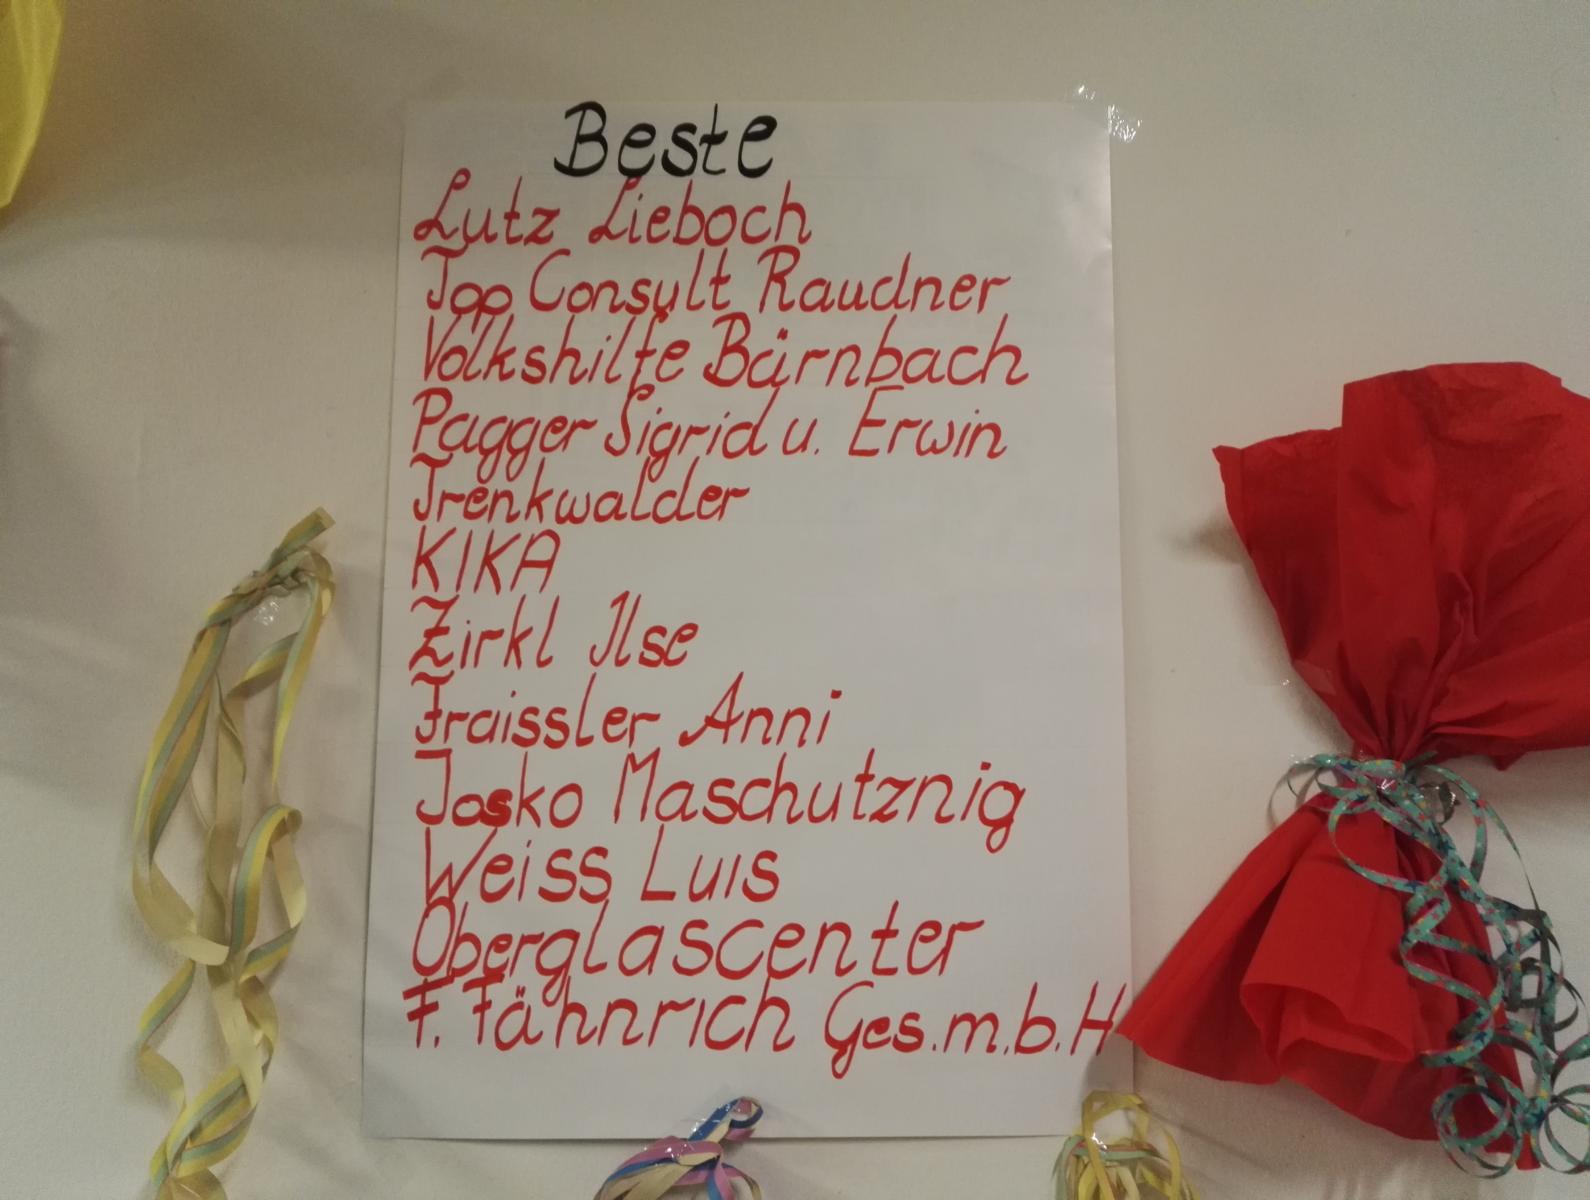 Beste
Lutz Lieboch
Top Consult Raudner
Volkshilfe Bärnbach
Pagger Sigrid u. Erwin
Trenkwalder
KIKA
Zirkl Ilse
Fraissler Anni
Josko Maschutznig
Weiss Luis
Oberglascenter
F. Fähnrich Ges.m.b.H